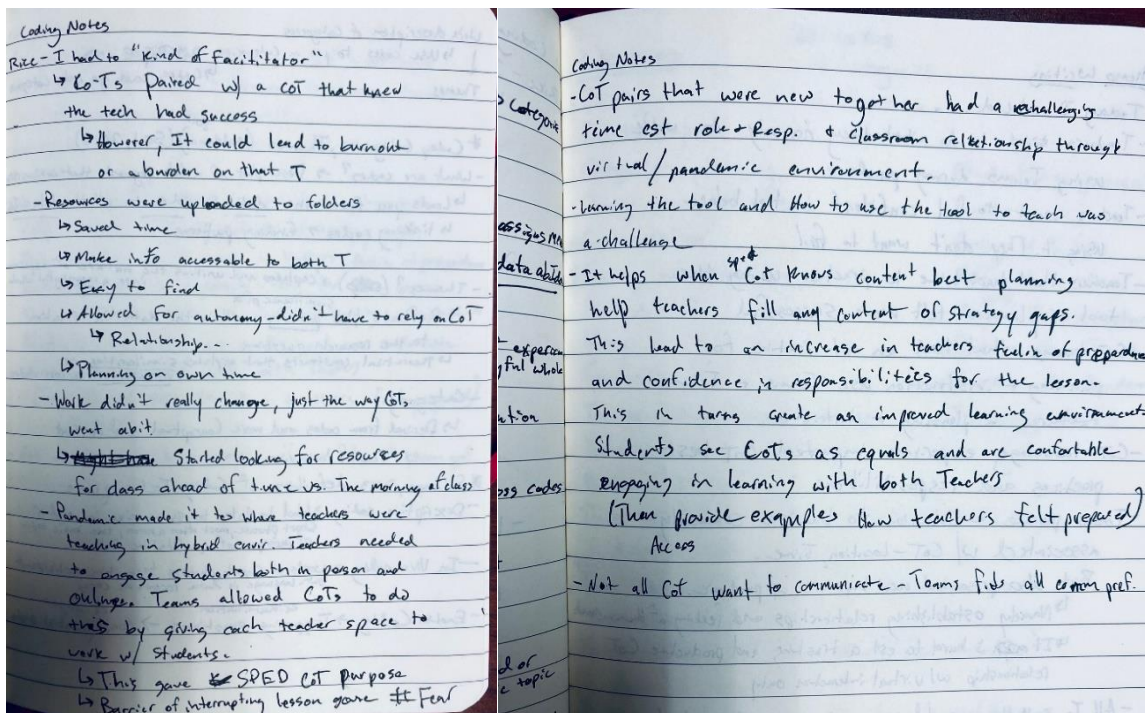 Coding Notes
Rice - I had to "Kind of Facititator"
↳ Co-Ts Paired w/ a CoT that knew
the tech had success
↳ However, It could lead to burnout
or a burden on that T
- Resources were uploaded to folders
↳ Saved time
↳ Make info accessable to both T
↳ Easy to find
↳ Allowed for autonomy - didn't have to rely on CoT
↳ Relationship...
↳ Planning on own time
- Work didn't really change, just the way CoTs
went abit
↳ Started looking for resources
for class ahead of time vs. The morning of class
- Pandemic made it to where teachers were
teaching in hybrid envir. Teachers needed
to engage students both in person and
online. Teams allowed CoTs to do
this by giving each teacher space to
work w/ students.
↳ This gave SPED CoT purpose
↳ Barrier of interrupting lesson gone # Fear
Categorie
assigns
data
experien
ful whole
ntion
oss codes
d or
e topic
Coding Notes
- CoT pairs that were new together had a challenging
time est role & Resp. & Classroom relationship through
virtual/pandemic environment.
- Learning the tool and How to use the tool to teach was
a challenge
- It helps when sped CoT knows content best planning
help teachers fill any content of strategy gaps.
This lead to an increase in teachers feelin of prepardne
and confidence in responsibilities for the lesson.
This in turns create an improved learning environment.
Students see CoTs as equals and are confortable
engaging in learning with both Teachers
(Then provide examples How teachers felt prepared)
Access
- Not all CoT want to communicate - Teams fids all comm pref.